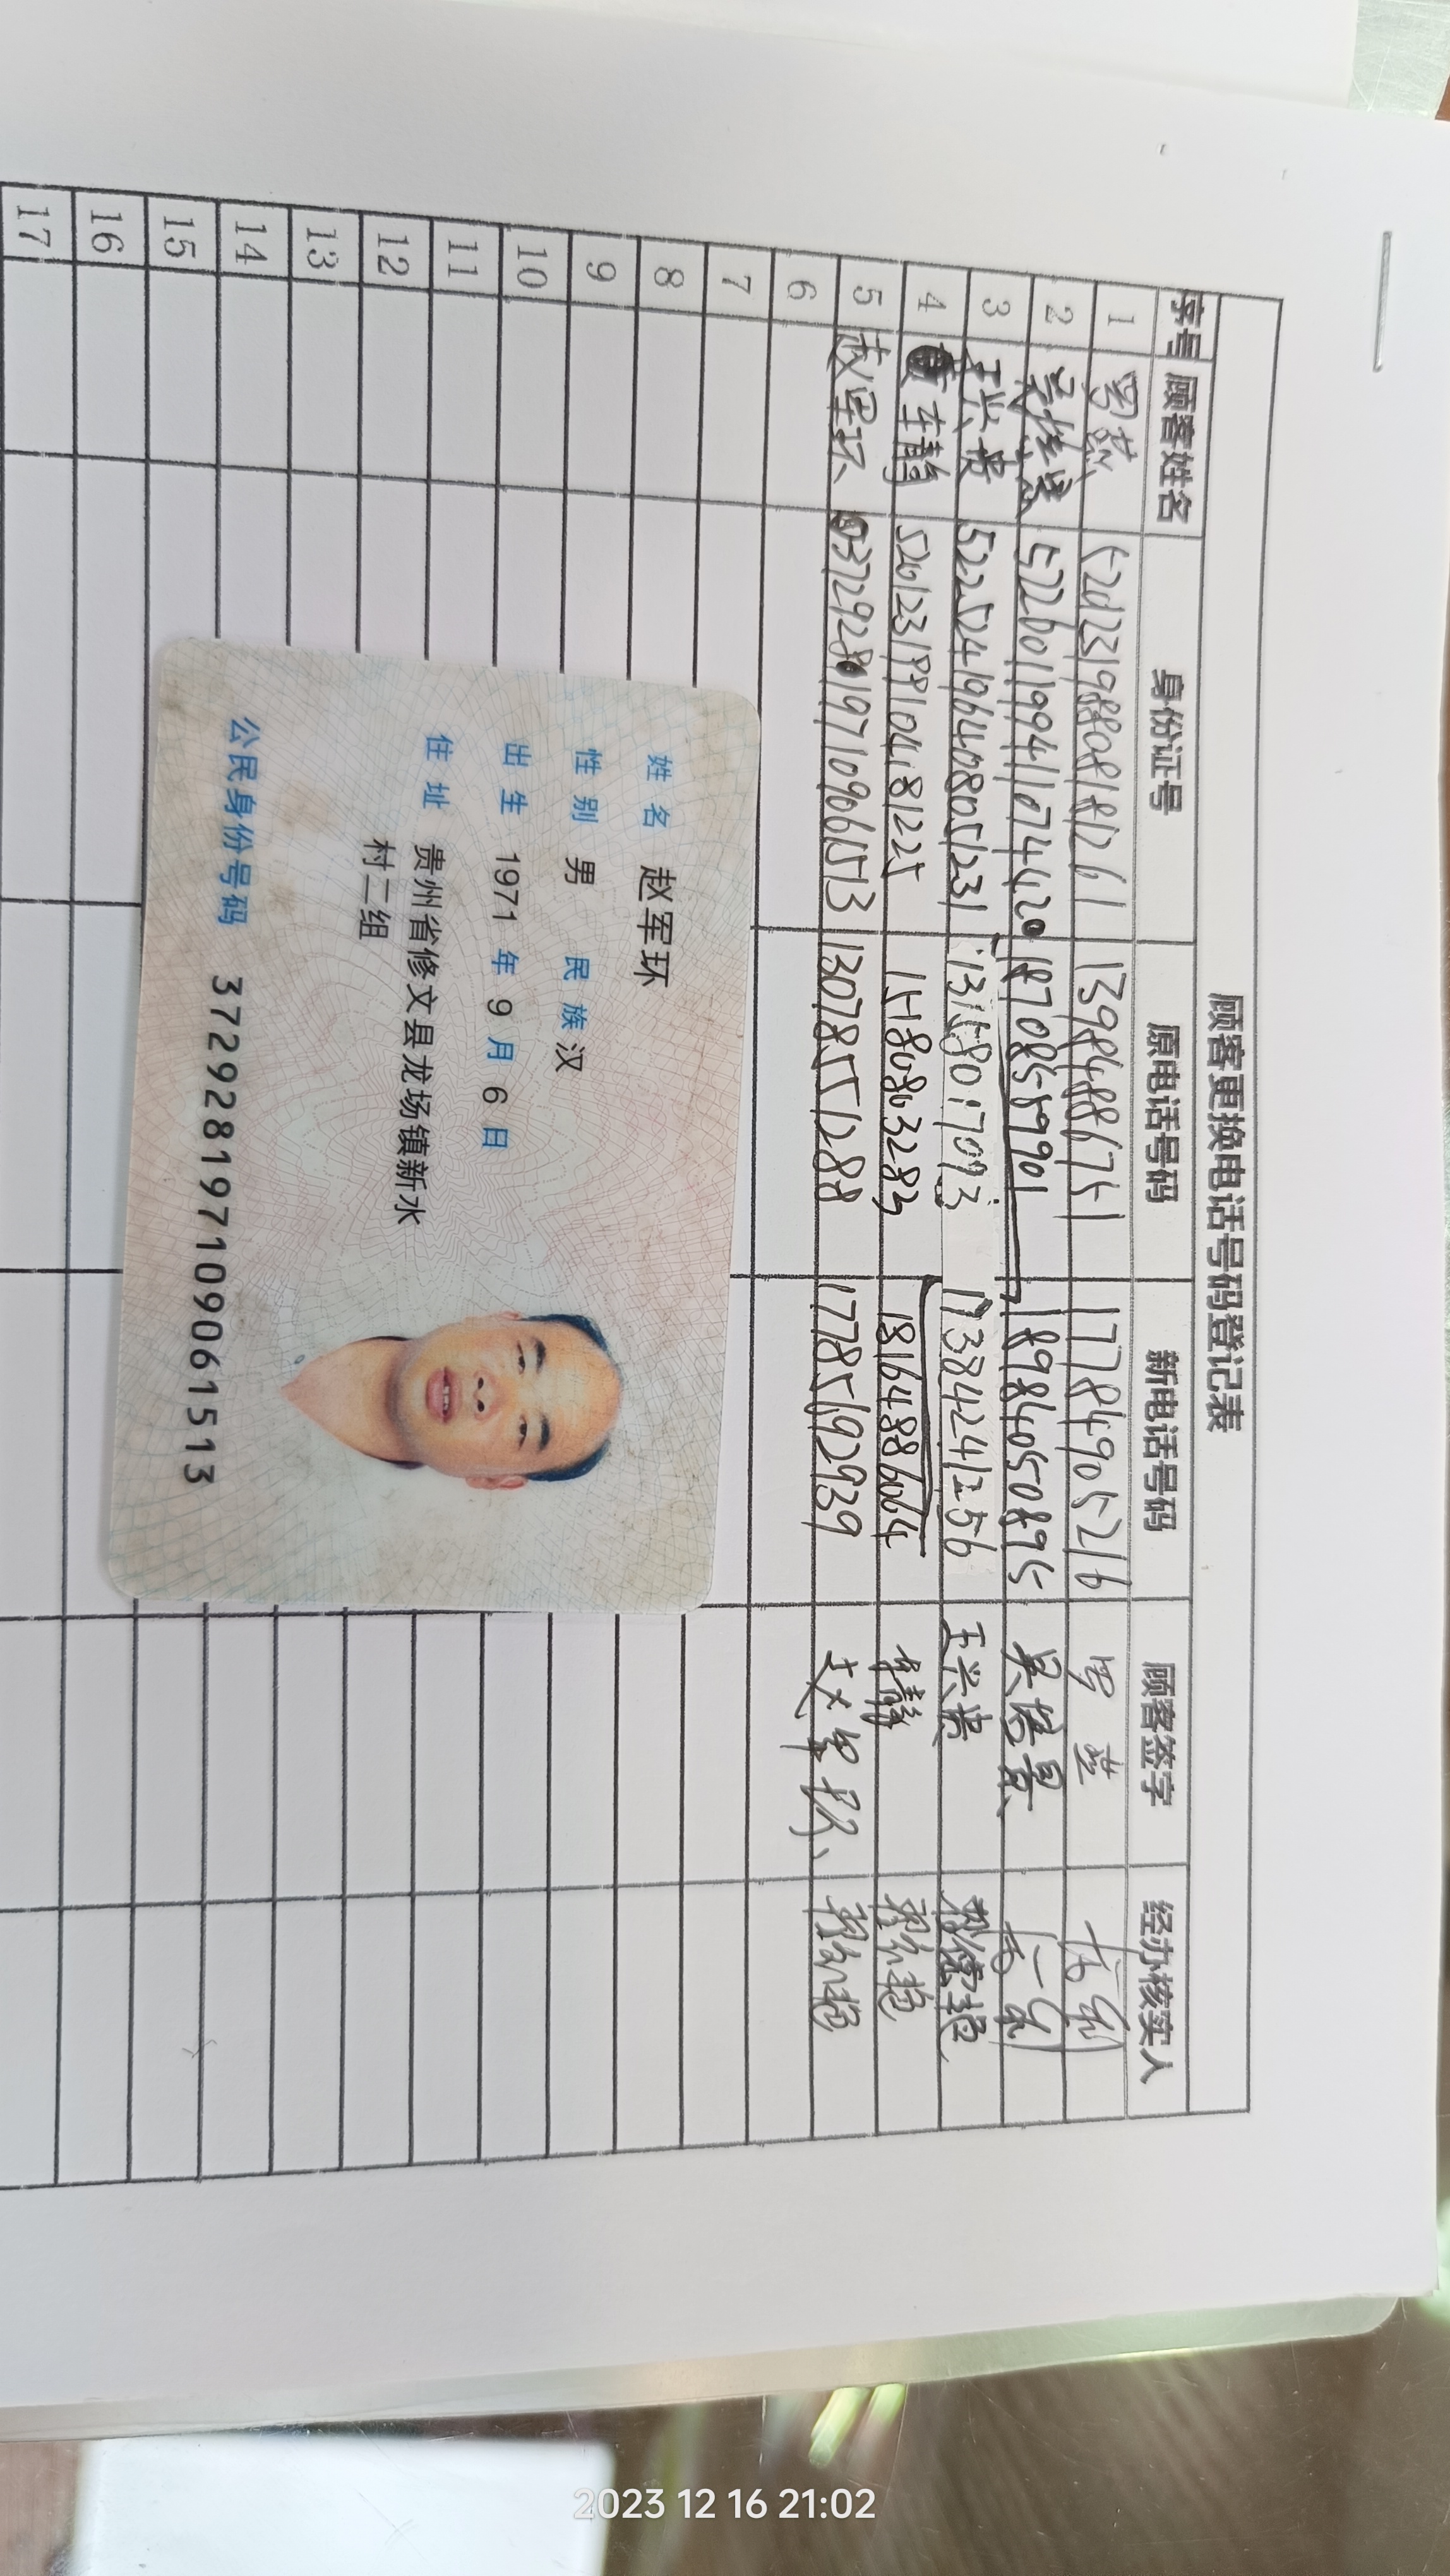 顾客更换电话号码登记表
序号 顾客姓名 身份证号 原电话号码 新电话号码 顾客签字 经办核实人
1 13984886751 17784905216
2 522601199411074420 18708589901 18984050895
3 王兴贵 522524196408051231 13158017093 17384241256 王兴贵
4 车静 520123199104181225 15180863283 18164886064 车静
5 赵军环 372928197109061513 13078551288 17785192939 赵军环
6
7
8
9
10
11
12
13
14
15
16
17
姓名 赵军环
性别 男 民族 汉
出生 1971 年 9 月 6 日
住址 贵州省修文县龙场镇新水
村二组
公民身份号码 372928197109061513
2023 12 16 21:02